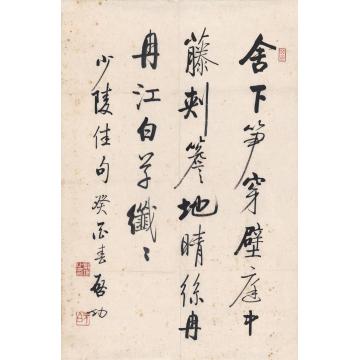 舍下笋穿壁庭中
藤刺簷地晴絲冉
冉江白草纖々
少陵佳句 癸酉春 启功